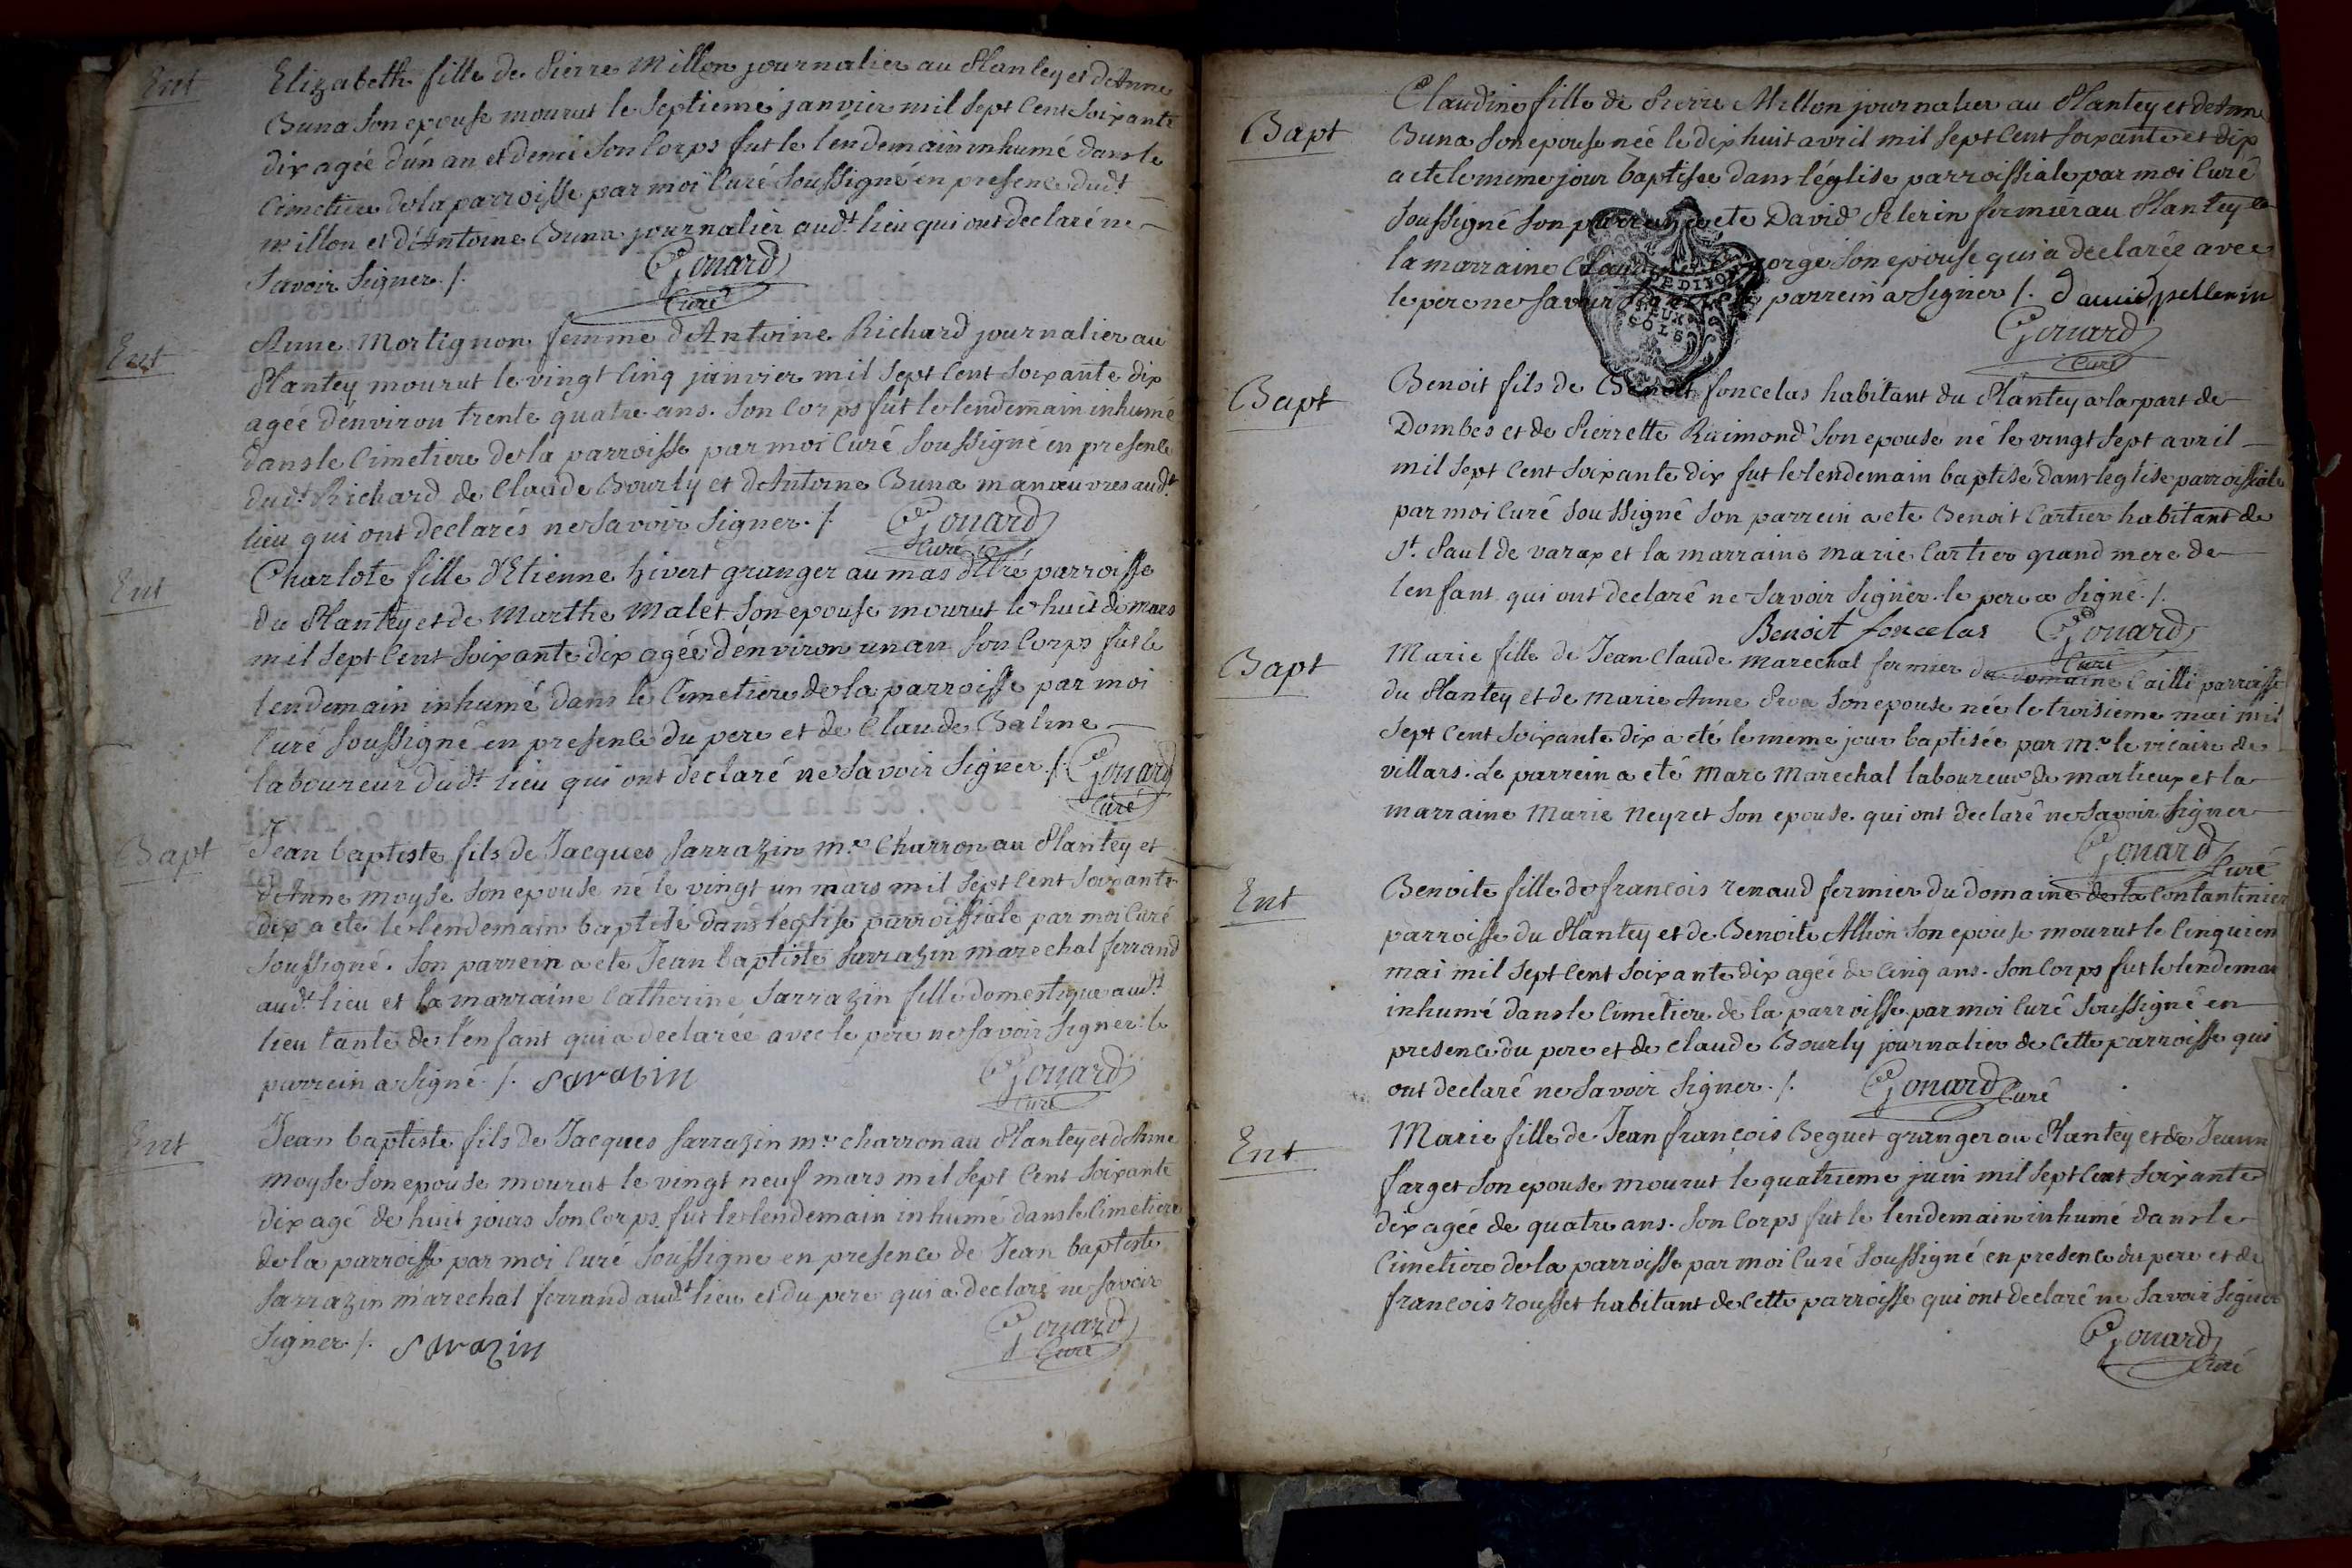 Ent
Elizabeth fille de Pierre Millon journalier au Plantey et d'Anne
Buna son epouse mourut le septieme janvier mil sept cent soixante
dix agée d'un an et demi son corps fut le lendemain inhumé dans le
cimetiere de la parroisse par moi curé soussigné en presence dudt
millon et d'Antoine Buna journalier audt lieu qui ont declaré ne
savoir signer ./.
Gouard
Curé
Ent
Anne Mortignon femme d'Antoine Richard journalier au
Plantey mourut le vingt cinq janvier mil sept cent soixante dix
agée d'environ trente quatre ans. son corps fut le lendemain inhumé
dans le cimetiere de la parroisse par moi curé soussigné en presence
dudt Richard de Claude Bourly et d'Antoine Buna manœuvres audt
lieu qui ont declarés ne savoir signer ./. Gouard
Curé
Ent
Charlote fille d'Etienne hivert granger au mas parroisse
du Plantey et de Marthe Malet son epouse mourut le huit de mars
mil sept cent soixante dix agée d'environ un an son corps fut le
lendemain inhumé dans le cimetiere de la parroisse par moi
curé soussigné en presence du pere et de Claude Balme
laboureur dudt lieu qui ont declaré ne savoir signer ./. Gouard
Curé
Bapt
Jean baptiste fils de Jacques sarrazin mre charron au Plantey et
d'Anne moyse son epouse né le vingt un mars mil sept cent soixante
dix a ete le lendemain baptisé dans l'église parroissiale par moi curé
soussigné. son parrein a ete Jean baptiste sarrazin marechal ferrand
audt lieu et la marraine Catherine sarrazin fille domestique audt
lieu tante de l'enfant qui a declarée avec le pere ne savoir signer le
parrein a signé ./. Sarazin
Gouard
Curé
Ent
Jean baptiste fils de Jacques sarrazin mre charron au Plantey et d'Anne
moyse son epouse mourut le vingt neuf mars mil sept cent soixante
dix agé de huit jours son corps fut le lendemain inhumé dans le cimetiere
de la parroisse par moi curé soussigne en presence de Jean baptiste
sarrazin marechal ferrand audt lieu et du pere qui a declaré ne savoir
signer ./. Sarazin
Gouard
Curé
Bapt
Claudine fille de Pierre Millon journalier au Plantey et d'Anne
Buna son epouse née le dix huit avril mil sept cent soixante et dix
a ete le meme jour baptisée dans l'église parroissiale par moi curé
soussigné son parrein a ete David Pelerin fermier au Plantey et
la marraine son epouse qui a declarée avec
le pere ne savoir signer parrein a signer ./. dauid pellerin
Gouard
Curé
DE DIJON
DEUX
SOLS
Bapt
Benoit fils de Benoit foncelas habitant du Plantey a la part de
Dombes et de Pierrette Raimond son epouse né le vingt sept avril
mil sept cent soixante dix fut le lendemain baptisé dans leglise parroissiale
par moi curé soussigné son parrein a ete Benoit Cartier habitant de
St. Paul de varax et la marraine marie Cartier grand mere de
l'enfant qui ont declaré ne savoir signer. le pere a signé ./.
Benoit foncelas Gouard
Curé
Bapt
Marie fille de Jean Claude marechal fermier du domaine Cailli parroisse
du Plantey et de marie Anne son epouse née le troisieme mai mil
sept cent soixante dix a eté le meme jour baptisée par mr le vicaire de
villars. Le parrein a eté Marc Marechal laboureur de marlieux et la
marraine Marie Neyret son epouse. qui ont declaré ne savoir signer
Gouard
Curé
Ent
Benoite fille de francois renaud fermier du domaine de la Contantinier
parroisse du Plantey et de Benoite Allion son epouse mourut le cinquiem
mai mil sept cent soixante dix agée de cinq ans. son corps fut le lendemai
inhumé dans le cimetiere de la parroisse par moi curé soussigné en
presence du pere et de claude Bourly journalier de cette parroisse qui
ont declaré ne savoir signer ./. Gouard Curé
Ent
Marie fille de Jean francois Beguet granger au Plantey et de Jeann
farget son epouse mourut le quatrieme juin mil sept cent soixante
dix agée de quatre ans. son corps fut le lendemain inhumé dans le
cimetiere de la parroisse par moi curé soussigné en presence du pere et de
francois rousset habitant de cette parroisse qui ont declaré ne savoir signer
Gouard
Curé